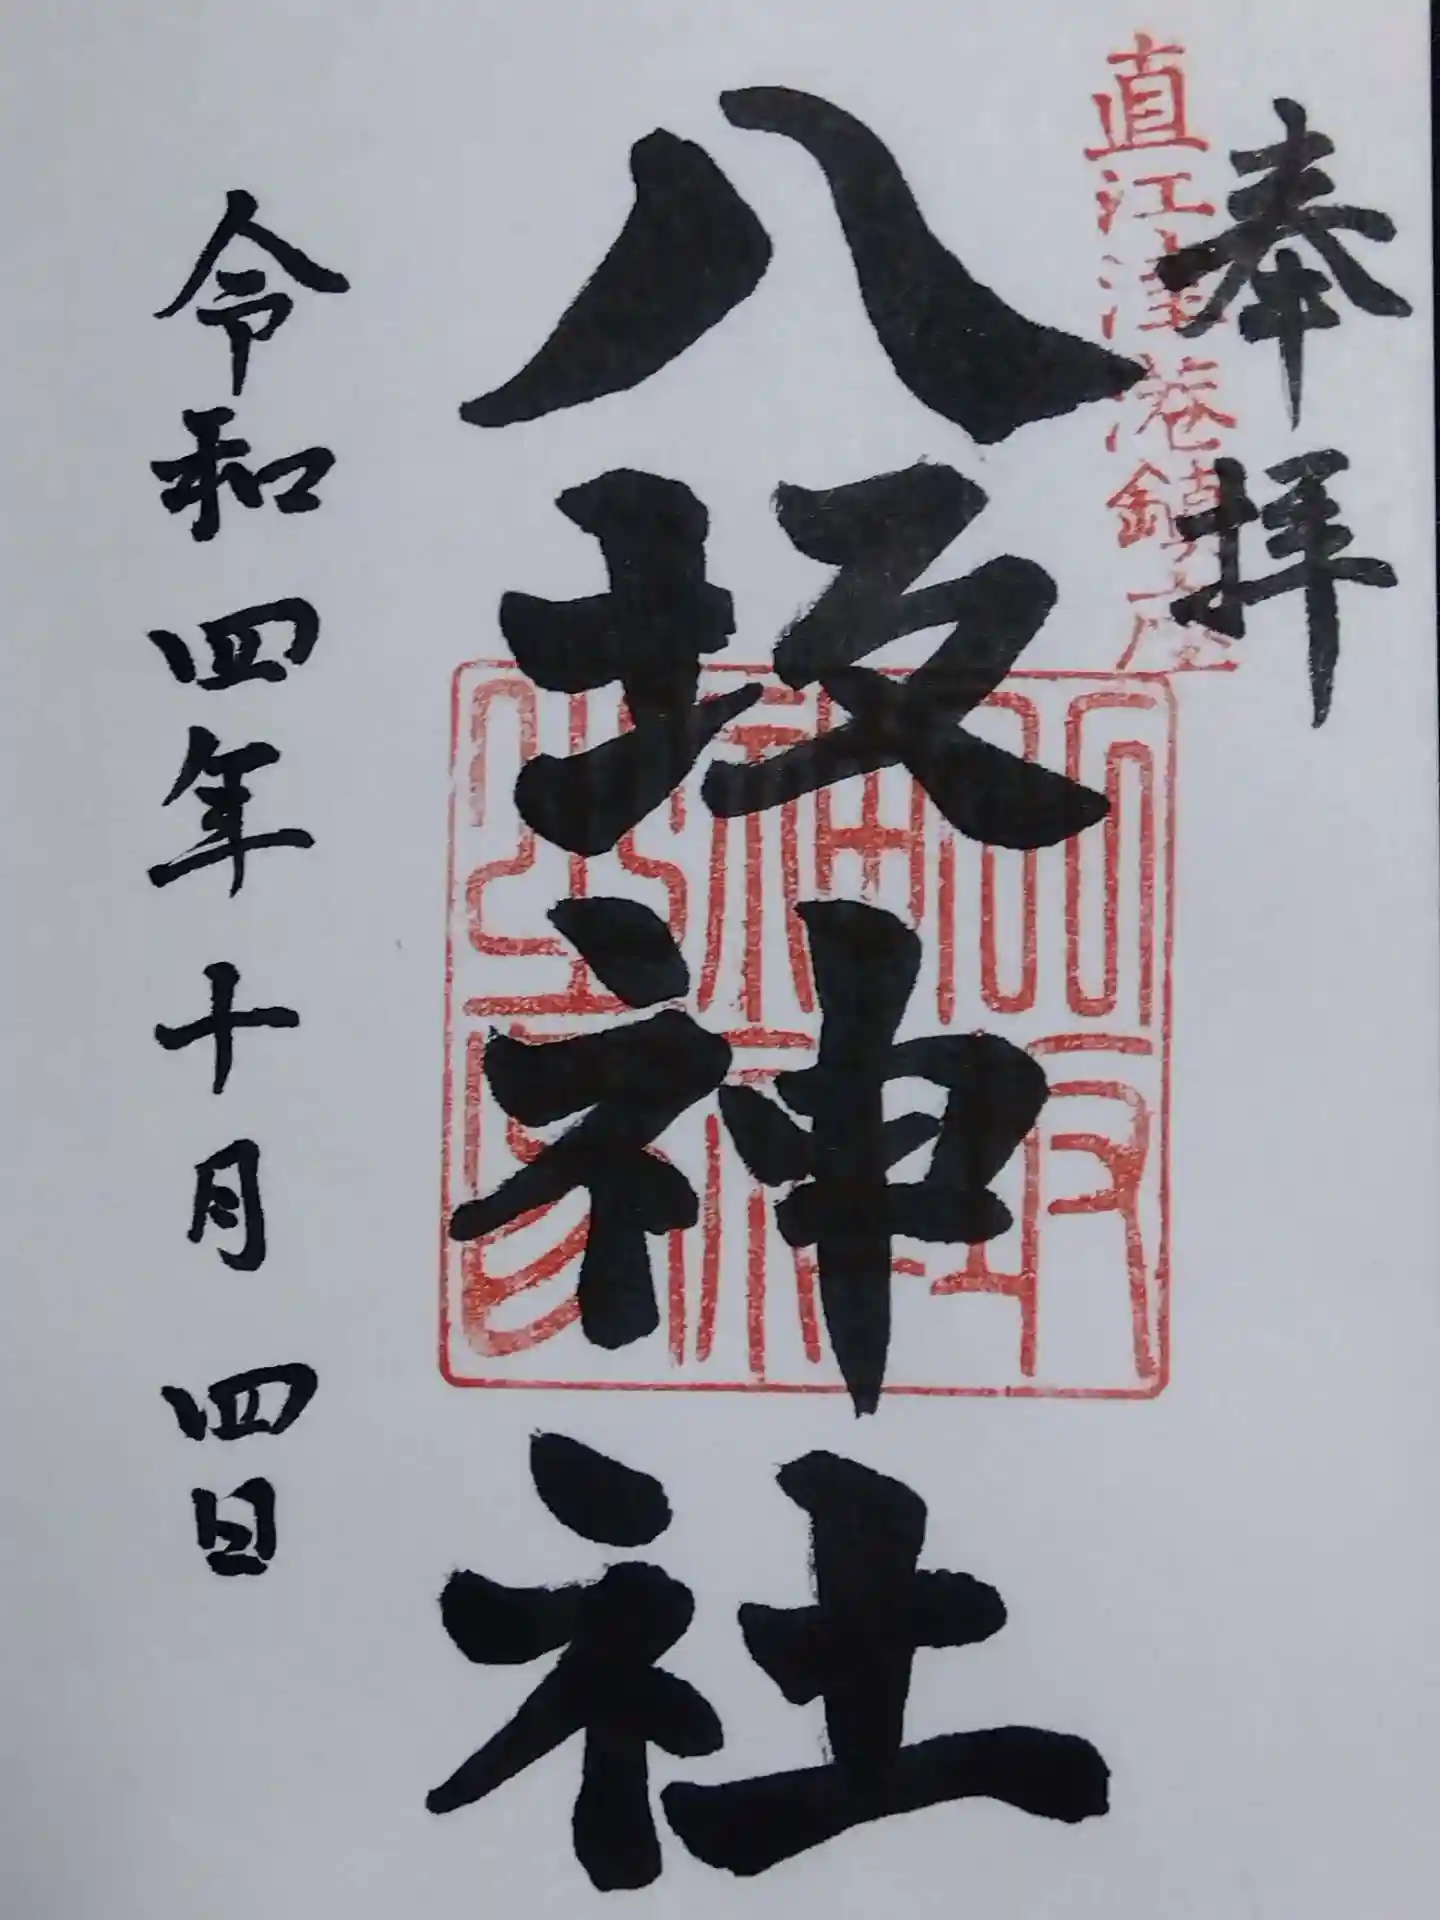 奉拝
直江津港鎮座
八坂神社
令和四年十月四日